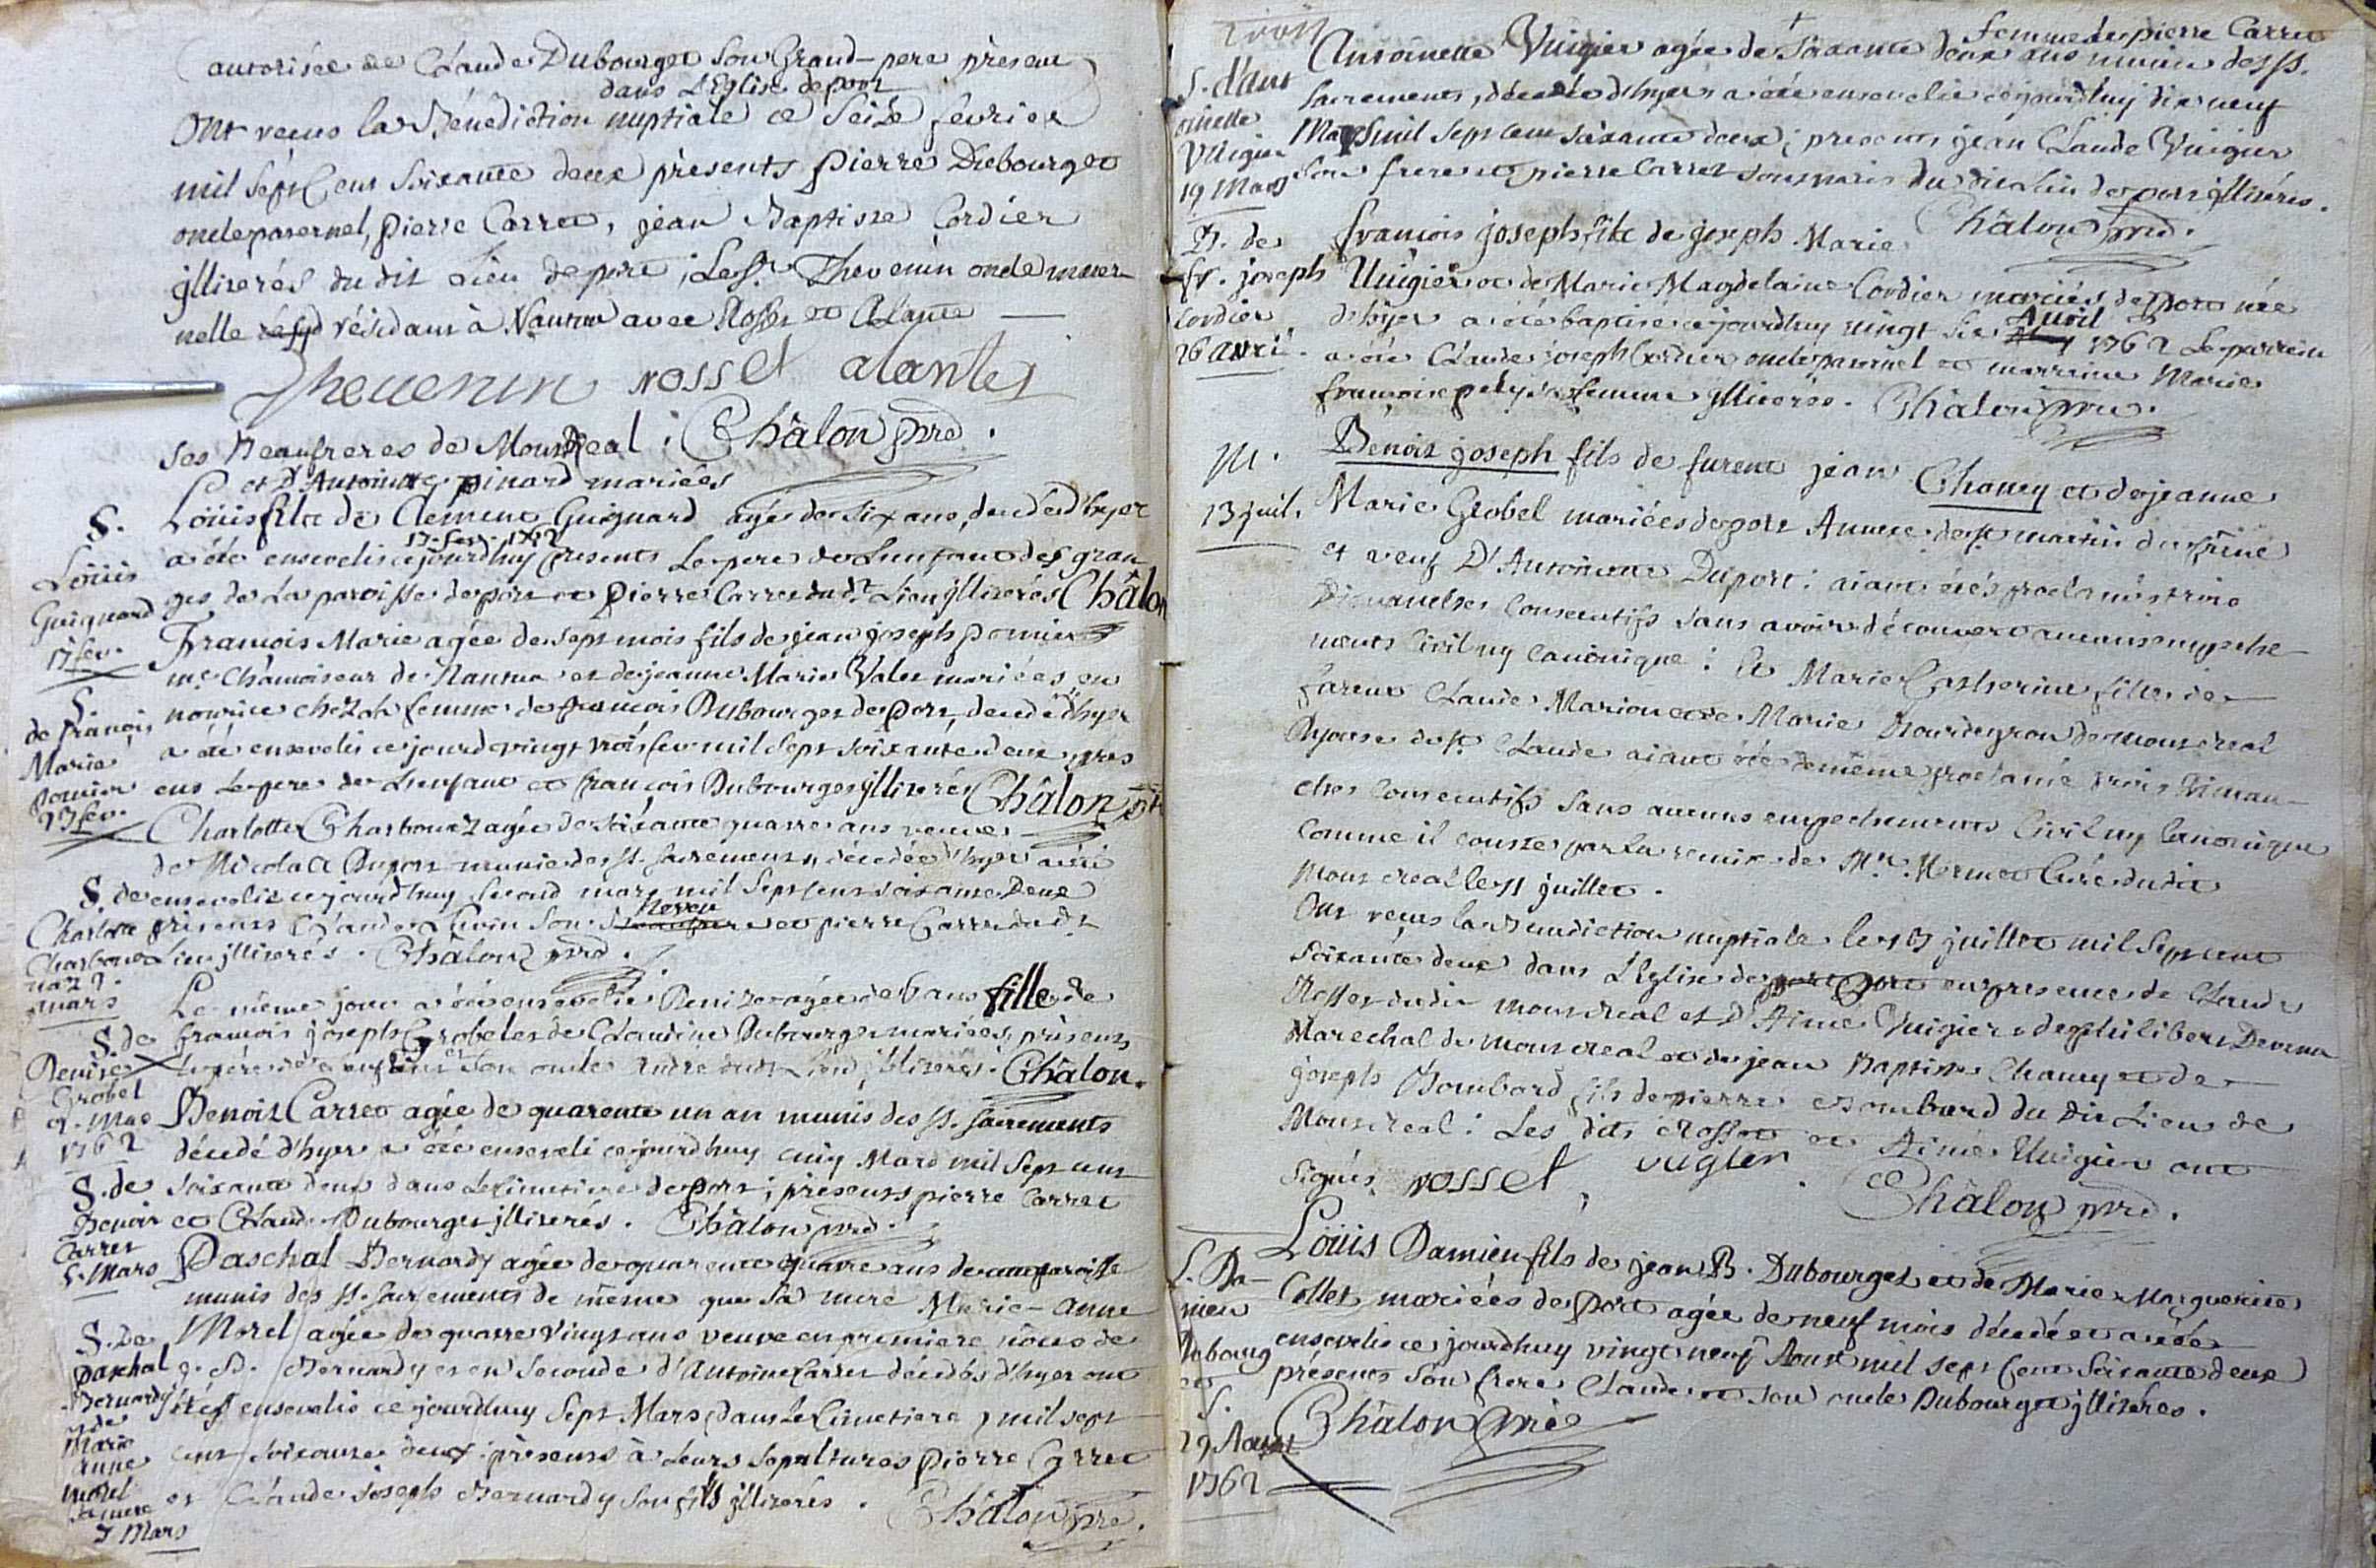 autorisée de Claude Dubourget son Grand-pere présent
dans L'Eglise de port
Ont reçus la Bénédiction nuptiale ce Seize fevrier
mil sept Cent soixante deux présents pierre Dubourget
oncle paternel, pierre Carret, jean Baptiste Cordier
jlliterés du dit Lieu de port ; Le Sr. Thevenin oncle mater-
nelle résidant à Nantua avec Rosset et Alante
Thevenin rosset alantes
ses Beaufreres de Montreal . Châlon prê.
et d'Antoinette pinard mariées
S.
Loüis
Guignard
17 fev.
Loüis fils de Clement Guignard agé de six ans, decedé d'hyer
17. fev. 1762
a été enseveli ce jourdhuy presents Le pere de Lenfant des gran-
ges de La paroisse de port et Pierre Carret du dt. Lieu jlliterés Châlon
S.
de françois
Marie
pomier
23 fev.
François Marie agée de sept mois fils de jean joseph pomier
me. Chamoiseur de Nantua et de jeanne Marie Valet mariées en
nourice chez la femme de françois Dubourget de port, decedé d'hyer
a été enseveli ce jourd vingt trois fev. mil sept soixante deux, pres
ens Le pere de Lenfant et françois Dubourget jlliterés Châlon prê
S. de
Charlotte
Charbona
naz 2.
mars
Charlotte Charbonaz agée de soixante quatre ans veuve
de Nicolas Duport munie des Ss. Sacréments, décedée d'hyer a été
ensevelie ce jourdhuy second mars mil sept cent soixante Deux
Neveu
présents Claude son et pierre Carret du dt.
Lieu jlliterés . Châlon prê.
S. de
Denise
Grobel
2. Mars
1762
Le même jour a été ensevelie Denize agée de 6 ans fille de
françois joseph Grobel et de Claudine Dubourget mariées, présents
le pére de Lenfant et son oncle du dt. Lieu jlliterés. Châlon.
S. de
Benoit
Carret
5. Mars
Benoit Carret agée de quarente un an munis des Ss. Sacrements
décedé d'hyer a été enseveli ce jourdhuy cinq Mars mil sept cent
soixante deux dans Le Cimetiere de port ; présents pierre Carret
et Claude Dubourget jlliterés . Châlon prê.
S. de
paschal
Bernardy
et de
Marie
anne
morel
sa mere
7 Mars
Paschal Bernardy agée de quarente quatre ans de cette paroisse
munis des Ss. Sacrements de même que sa mere Marie-anne
Morel agée de quatre vingt ans veuve en premiere nôces de
Bernardy et en seconde d'Antoine Carret décedés d'hyer ont
étés ensevelis ce jourdhuy Sept Mars dans Le Cimetiere, mil sept
cent soixante deux présents à Leurs sepultures Pierre Carret
et Claude joseph Bernardy son fils jlliterés . Châlon prê.
S. d'ant
oinette
Vuigier
19 Mars
femme de pierre Carret
Antoinette Vuigier agée de soixante deux ans munie des Ss.
Sacrements, décedée d'hyer a été ensevelie ce jourdhuy dix neuf
Mars mil sept cent soixante deux ; presents jean Claude Vuigier
son frere et pierre Carret son mari du dit Lieu de port jlliterés.
Châlon prê.
B. de
fr. joseph
cordier
26 avri.
françois joseph fils de joseph Marie
Vuigier et de Marie Magdelaine Cordier mariées de Port née
Avril
d'hyer a été baptisé ce jourdhuy vingt six 1762 Le parrein
a été Claude joseph Cordier oncle paternel et marreine Marie
françoise sa femme jlliterés. Châlon prê.
M.
13 juil.
Benoit joseph fils de furent jean Chaney et de jeanne
Marie Grobel mariées de port Annexe de St. martin du frêne
et veuf D'Antoinette Duport : aiant étés proclamés trois
Dimanches Consecutifs sans avoir découvert aucuns empeche-
ments Civil ny Canonique : Et Marie Catherine fille de
furent Claude Marion et de Marie de Montreal
Diocese de St. Claude aiant été de même proclamée trois Diman-
ches Consecutifs sans aucuns empechements Civil ny Canonique
comme il conste par La remise de Mr. Curé du dit
Montreal le 11 juillet .
Ont reçus la Benediction nuptiale le 13 juillet mil sept cent
soixante deux dans L'Eglise de port en presence de Claude
Rosset du dit Montreal et d'Aimé Vuigier, de philibert
Marechal de Montreal et de jean Baptiste Chaney et de
joseph Bombard fils de pierre Bombard du dit Lieu de
Montreal : Les dits Rosset et Aimé Vuigier ont
signés. rosset , vugier . Châlon prê.
S. Da-
mien
Dubourg
et
S.
29 Aoust
1762
Loüis Damien fils de jean B. Dubourget et de Marie Marguerite
Collet mariées de port agée de neuf mois décedé et a été
ensevelis ce jourdhuy vingt neuf Aoust mil sept cent soixante deux
présents son frere Claude et son oncle Dubourget jlliterés .
Châlon prê